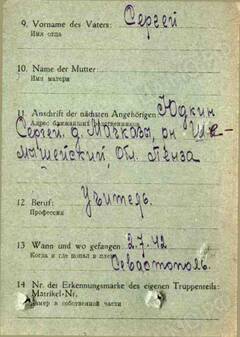 9. Vorname des Vaters: Сергей
Имя отца
10. Name der Mutter
Имя матери
11 Anschrift der nächsten Angehörigen: Юдкин
Адрес ближайших родственников
Сергей. д. Мачказы, он
Обл. Пенза
12 Beruf: Учитель.
Профессия
13 Wann und wo gefangen: 2.7.42
Когда и где попал в плен
Севастополь.
14 Nr. der Erkennungsmarke des eigenen Truppenteils:
Matrikel-Nr.
Номер в собственной части